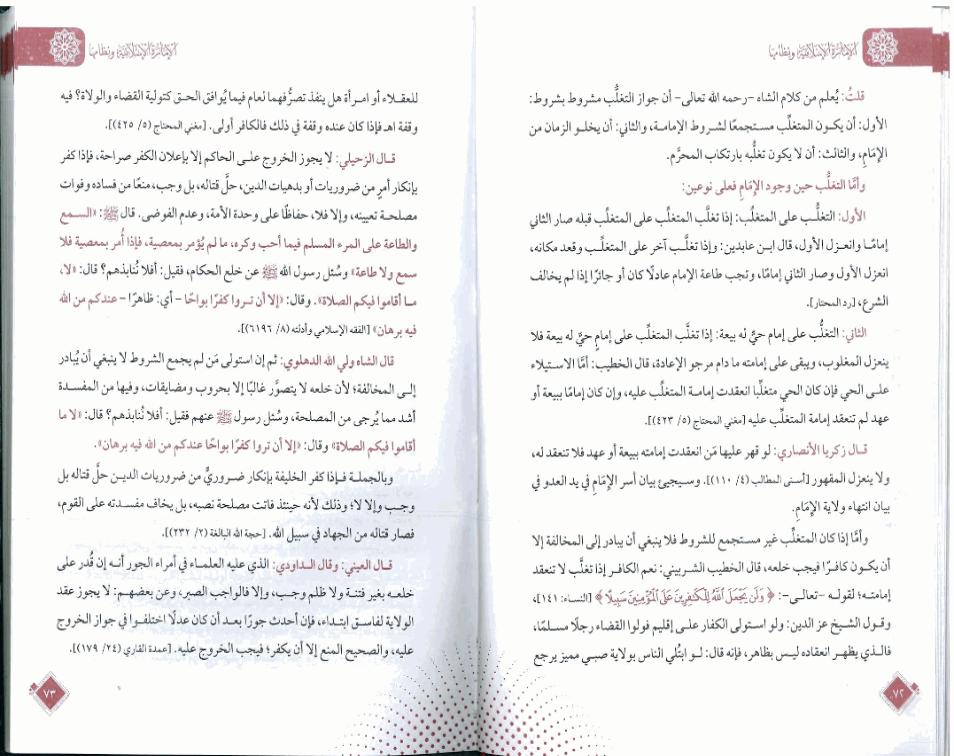 الإمارة الإسلامية ونظامها
قلتُ: يُعلم من كلام الشاه -رحمه الله تعالى- أن جواز التغلُّب مشروط بشروط:
الأول: أن يكون المتغلِّب مستجمعًا لشروط الإمامة، والثاني: أن يخلو الزمان من
الإمَامِ، والثالث: أن لا يكون تغلُّبه بارتكاب المحرَّم.
وأمَّا التغلُّب حين وجود الإمَام فعلى نوعين:
الأول: التغلُّب على المتغلِّب: إذا تغلَّب المتغلِّب على المتغلِّب قبله صار الثاني
إمامًا وانعزل الأول، قال ابن عابدين: وإذا تغلَّب آخر على المتغلِّب وقعد مكانه،
انعزل الأول وصار الثاني إمامًا، وتجب طاعة الإمام عادلًا كان أو جائرًا إذا لم يخالف
الشرع، [رد المحتار].
الثاني: التغلُّب على إمام حيٍّ له بيعة: إذا تغلَّب المتغلِّب على إمامٍ حيٍّ له بيعة فلا
ينعزل المغلوب، ويبقى على إمامته ما دام مرجو الإعادة، قال الخطيب: أمَّا الاستيلاء
على الحي فإن كان الحي متغلِّبا انعقدت إمامة المتغلِّب عليه، وإن كان إمامًا ببيعة أو
عهد لم تنعقد إمامة المتغلِّب عليه [مغني المحتاج (٥/ ٤٢٣)].
قال زكريا الأنصاري: لو قهر عليها مَن انعقدت إمامته ببيعة أو عهد فلا تنعقد له،
ولا ينعزل المقهور [أسنى المطالب (٤/ ١١٠)]. وسيجيئ بيان أسر الإمَام في يد العدو في
بيان انتهاء ولاية الإمَامِ.
وأمَّا إذا كان المتغلِّب غير مستجمع للشروط فلا ينبغي أن يبادر إلى المخالفة إلا
أن يكون كافرًا فيجب خلعه، قال الخطيب الشربيني: نعم الكافر إذا تغلَّب لا تنعقد
إمامته؛ لقوله -تعالى-: ﴿ وَلَن يَجْعَلَ اللَّهُ لِلْكَافِرِينَ عَلَى الْمُؤْمِنِينَ سَبِيلًا ﴾ [النساء: ١٤١]،
وقول الشيخ عز الدين: ولو استولى الكفار على إقليم فولوا القضاء رجلًا مسلمًا،
فالذي يظهر انعقاده ليس بظاهر، فإنه قال: لو ابتُلي الناس بولاية صبي مميز يرجع
٧٢
الإمارة الإسلامية ونظامها
للعقلاء أو امرأة هل ينفذ تصرُّفهما لعام فيما يُوافق الحق كتولية القضاء والولاة؟ فيه
وقفة اهـ فإذا كان عنده وقفة في ذلك فالكافر أولى. [مغني المحتاج (٥/ ٤٢٥)].
قال الزحيلي: لا يجوز الخروج على الحاكم إلا بإعلان الكفر صراحة، فإذا كفر
بإنكار أمرٍ من ضروريات أو بدهيات الدين، حلَّ قتاله، بل وجب، منعًا من فساده وفوات
مصلحة تعيينه، وإلا فلا، حفاظًا على وحدة الأمة، وعدم الفوضى. قال ﷺ: «السمع
والطاعة على المرء المسلم فيما أحب وكره، ما لم يُؤمر بمعصية، فإذا أُمر بمعصية فلا
سمع ولا طاعة» وسُئل رسول الله ﷺ عن خلع الحكام، فقيل: أفلا نُنابذهم؟ قال: «لا،
ما أقاموا فيكم الصلاة». وقال: «إلا أن تروا كفرًا بواحًا - أي: ظاهرًا - عندكم من الله
فيه برهان» [الفقه الإسلامي وأدلته (٨/ ٦١٩٦)].
قال الشاه ولي الله الدهلوي: ثم إن استولى مَن لم يجمع الشروط لا ينبغي أن يُبادر
إلى المخالفة؛ لأن خلعه لا يتصوَّر غالبًا إلا بحروب ومضايقات، وفيها من المفسدة
أشد مما يُرجى من المصلحة، وسُئل رسول ﷺ عنهم فقيل: أفلا نُنابذهم؟ قال: «لا ما
أقاموا فيكم الصلاة» وقال: «إلا أن تروا كفرًا بواحًا عندكم من الله فيه برهان».
وبالجملة فإذا كفر الخليفة بإنكار ضروريٍّ من ضروريات الدين حلَّ قتاله بل
وجب وإلا لا؛ وذلك لأنه حينئذ فاتت مصلحة نصبه، بل يخاف مفسدته على القوم،
فصار قتاله من الجهاد في سبيل الله. [حجة الله البالغة (٢/ ٢٣٢)].
قال العيني: وقال الداودي: الذي عليه العلماء في أمراء الجور أنه إن قُدر على
خلعه بغير فتنة ولا ظلم وجب، وإلا فالواجب الصبر، وعن بعضهم: لا يجوز عقد
الولاية لفاسق ابتداء، فإن أحدث جورًا بعد أن كان عدلًا اختلفوا في جواز الخروج
عليه، والصحيح المنع إلا أن يكفر؛ فيجب الخروج عليه. [عمدة القاري (٢٤/ ١٧٩)].
٧٣